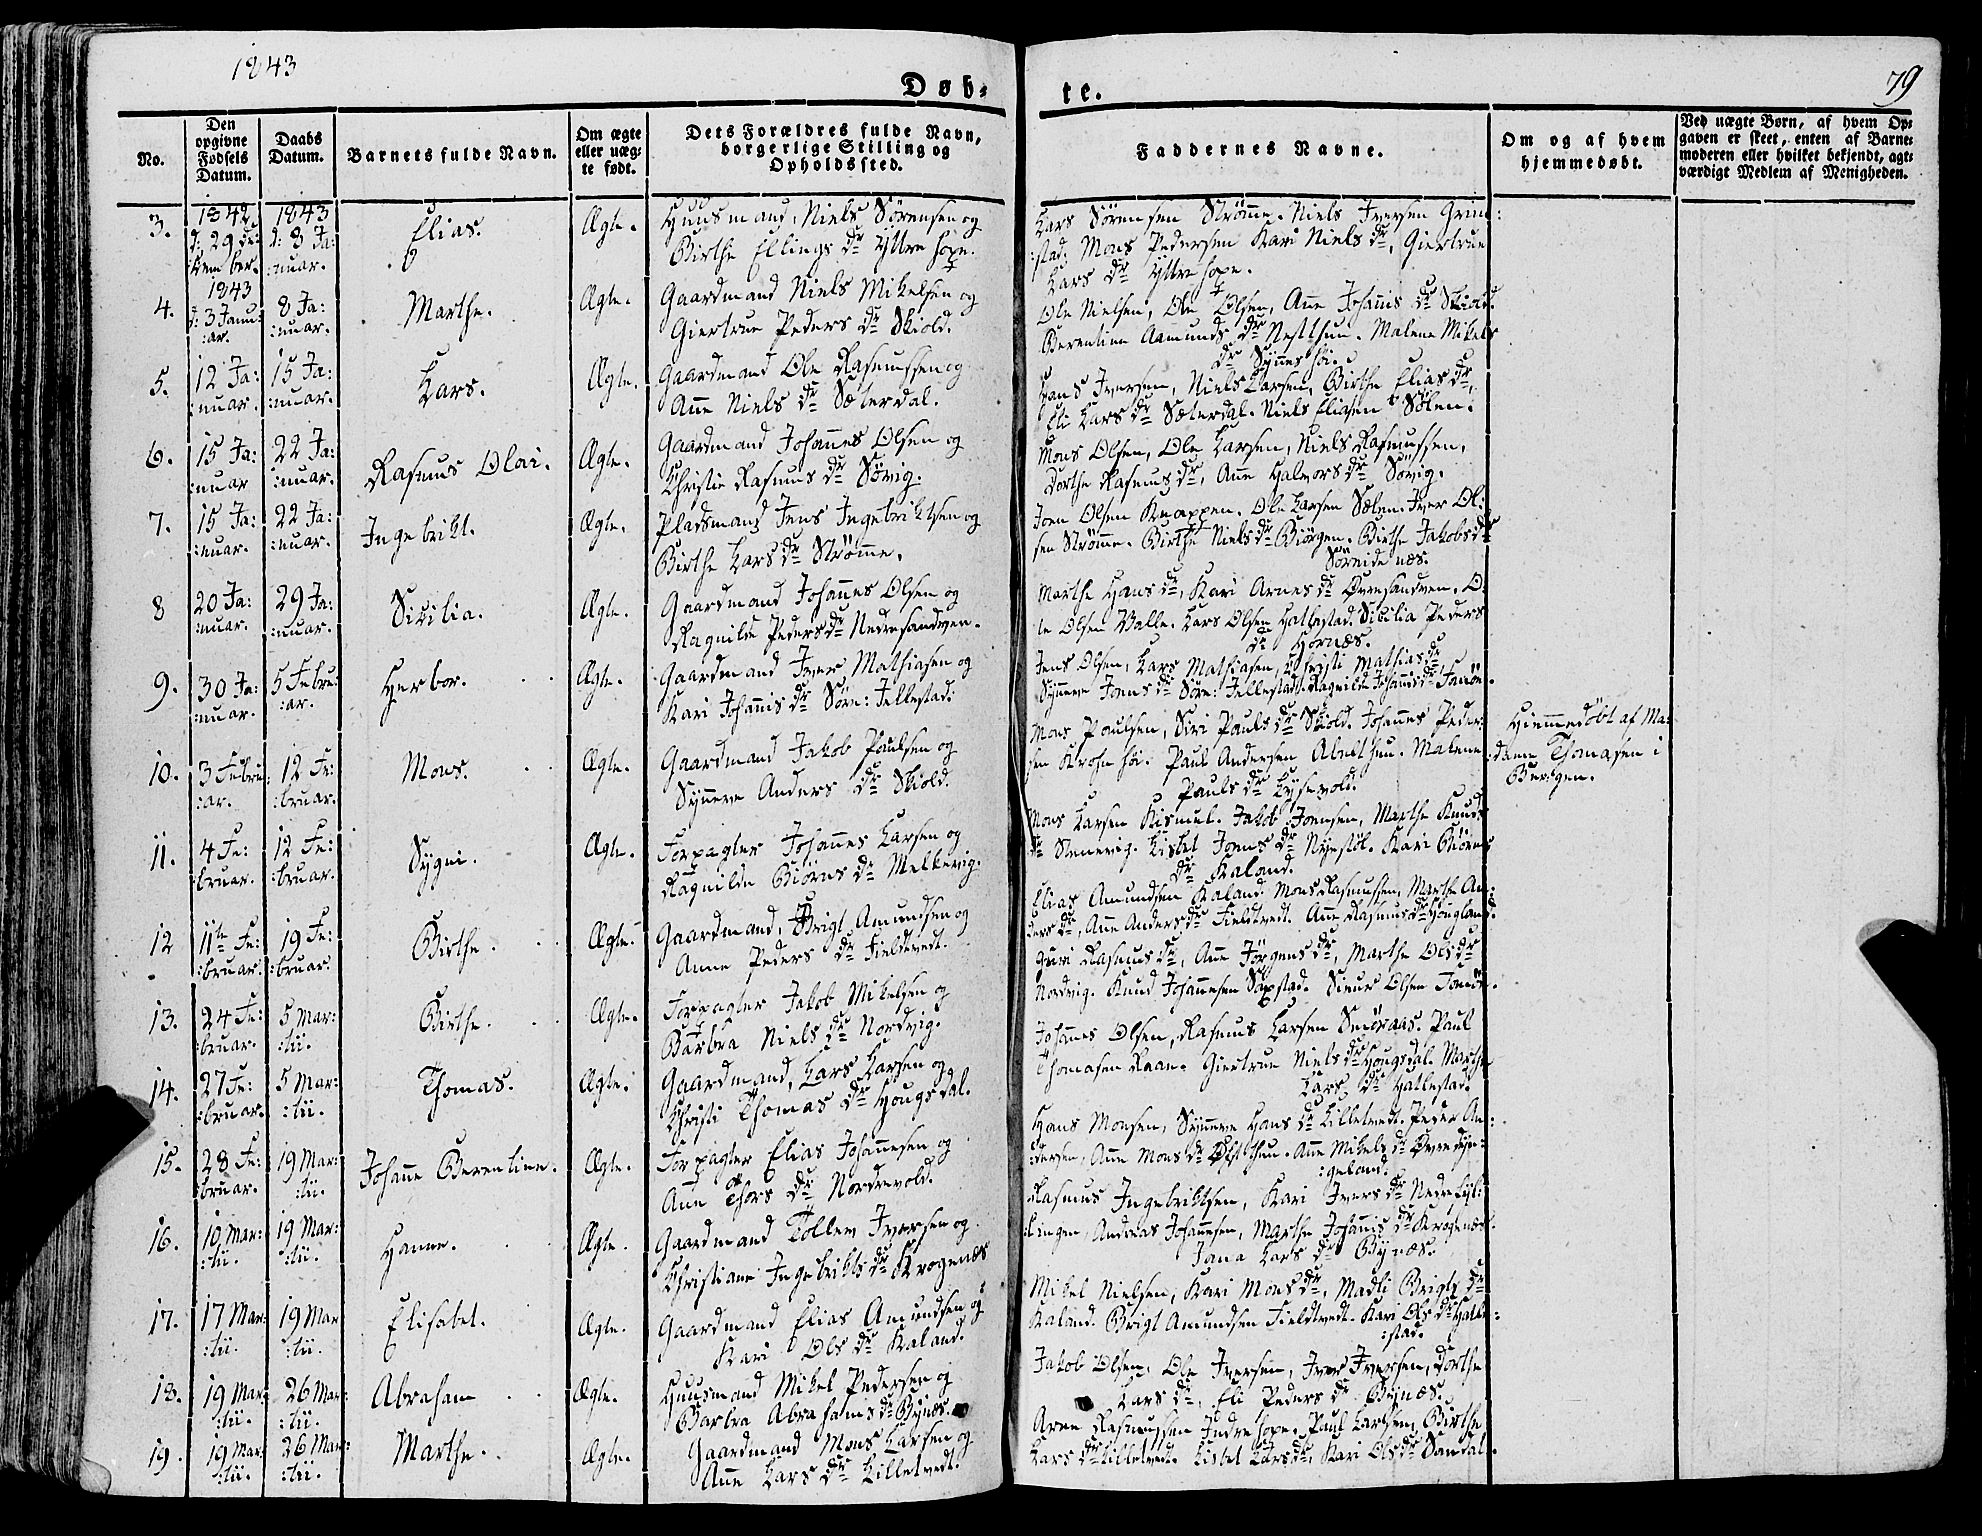 1843
Døb-
te.
79
No.
Den opgivne Fødsels Datum.
Daabs Datum.
Barnets fulde Navn.
Om ægte eller uæg-te født.
Dets Forældres fulde Navn, borgerlige Stilling og Opholdssted.
Faddernes Navne.
Om og af hvem hjemmedøbt.
Ved uægte Børn, af hvem Op-gaven er skeet, enten af Barne-moderen eller hvilket bekjendt, agt-værdigt Medlem af Menigheden.
3. 1842 d: 29 De:cember. 1843 d: 8 Ja:nuar. Elias. Ægte. Huusmand, Niels Sørensen og
Birthe Ellings dr Yttre hope.
Lars Sørensen Strømme. Niels Iversen Grim:
:stad, Mons Pedersen Kari Niels dr, Giertrue
Lars dr Yttre hope.
4. 1843 d: 3 Janu:ar. 8 Ja:nuar. Marthe. Ægte. Gaardmand Niels Mikelsen og
Giertrue Peders dr Skiold.
Ole Nielsen, Ole Olsen, Ane Johanis dr Skiold.
Berentine Aamunds dr Nestthun. Malene Mikels
dr Synneshøi.
5. 12 Ja:nuar. 15 Ja:nuar. Lars. Ægte. Gaardmand Ole Rasmussen og
Ane Niels dr Sæterdal.
Hans Iversen, Niels Larsen, Birthe Elias dr,
Eli Lars dr Sæterdal. Niels Eliasen Sølen.
6. 15 Ja:nuar 22 Ja:nuar. Rasmus Olai. Ægte. Gaardmand Johannes Olsen og
Christie Rasmus dr Sørvig.
Mons Olsen, Ole Larsen, Niels Rasmussen,
Dorthe Rasmus dr, Ane Halvors dr Sørvig.
7. 15 Ja:nuar. 22 Ja:nuar. Ingebrikt. Ægte. Pladsmand Jens Ingebriktsen og
Birthe Lars dr Strømme.
Joen Olsen Knappen. Ole Larsen Sælen. Iver Ol:
sen Strømme. Birthe Niels dr Biørgen. Birthe Jakobs dr
Søreidenæs.
8 20 Ja:nuar. 29 Ja:nuar. Sicilia. Ægte. Gaardmand Johannes Olsen og
Ragnilde Peders dr Nedresandven.
Marthe Hans dr, Kari Arnes dr Øvresandven. O:
le Olsen Valle. Lars Olsen Hatlestad. Sicilia Peders
dr Hornæs.
9. 30 Ja:nuar. 5 Febru:ar. Herbor. Ægte. Gaardmand Iver Mathiasen og
Kari Johannis dr Sørn: Fellestad.
Jens Olsen, Lars Mathiasen, Christi Mathias dr
Synneve Joens dr Sørn: Fellestad. Ragnilde Johannis dr
10. 3 Febru:ar. 12 Fe:bruar. Mons. Ægte. Gaardmand Jakob Paulsen og
Synneve Anders dr Skiold.
Mons Paulsen, Siri Pauls dr Skiold. Johannes Peder:
sen Krohnhøi. Paul Andersen Abelthun. Malene
Pauls dr Lysevold.
Hiemmedøbt af Ma:
:dame Thomasen i
Bergen.
11. 4 Fe:bruar. 12 Fe:bruar. Sygni. Ægte. Forpagter Johannes Larsen og
Ragnilde Biørns dr Melkevig.
Mons Larsen Kismul. Jakob Joensen, Marthe Knuds
dr Stenevig. Lisbet Joens dr Nyestøl. Kari Biørns
dr Kaland.
12 11te Fe:bruar. 19 Fe:bruar. Birthe. Ægte. Gaardmand, Brigt Amundsen og
Anne Peders dr Fieldtvedt.
Elias Amundsen Kaland. Mons Rasmussen, Marthe An:
ders dr, Ane Anders dr Fieldtvedt. Ane Rasmus dr Hougland.
13. 24 Fe:bruar. 5 Mar:tii. Birthe. Ægte. Forpagter Jakob Mikelsen og
Barbra Niels dr Nordvig.
Guri Rasmus dr, Ane Jørgens dr, Marthe Ols dr
Nordvig. Knud Johannesen Søpstad. Sieur Olsen
14. 27 Fe:bruar. 5 Mar:tii. Thomas. Ægte. Gaardmand, Lars Larsen og
Christi Thomas dr Hougsdal.
Johannes Olsen, Rasmus Larsen Smøraas. Paul
Thomasen Raae. Giertrue Niels dr Hougsdal. Marthe
Lars dr Hatlestad.
15. 28 Fe:bruar. 19 Mar:tii. Johane Berentine. Ægte. Forpagter Elias Johannesen og
Ane Thors dr Nordrevold.
Hans Monsen, Synneve Hans dr Lilletvedt. Peder An:
:dersen, Ane Mons dr Øvsthun. Ane Mikels dr
:geland.
16. 10 Mar:tii. 19 Mar:tii. Hanne. Ægte. Gaardmand Tollev Iversen og
Christiane Ingebrikts dr Krogenæs
Rasmus Ingebriktsen, Kari Ivers dr Nedre
:lingen, Andreas Johannesen, Marthe Johannis dr Krogenæs.
Jana Lars dr Bynæs.
17. 17 Mar:tii. 19 Mar:tii. Elisabet. Ægte. Gaardmand Elias Amundsen og
Kari Ols dr Kaland.
Mikel Nielsen, Kari Mons dr, Madli Brigts dr
Kaland. Brigt Amundsen Fieldtvedt. Kari Ols dr Hatle:
:stad.
18. 19 Mar:tii. 26 Mar:tii. Abraham Ægte. Huusmand Mikel Pedersen og
Barbra Abrahams dr Bynæs.
Jakob Olsen, Ole Iversen, Iver Iversen, Dorthe
Lars dr, Eli Peders dr Bynæs.
19. 19 Mar:tii. 26 Mar:tii. Marthe. Ægte. Gaardmand Mons Larsen og
Ane Lars dr Lilletvedt.
Arne Rasmussen Indrehope. Paul Larsen, Birthe
Lars dr Lilletvedt. Lisbet Lars dr, Kari Ols dr Sandal.